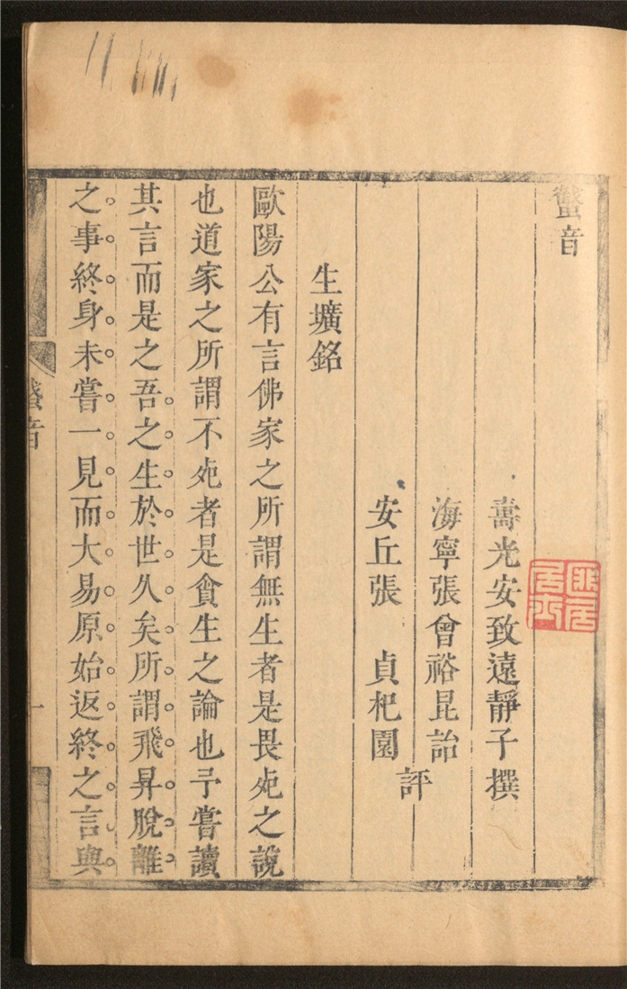 音
壽光安致遠靜子撰
海寧張曾裕昆詒
安丘張貞杞園
評
生壙銘
歐陽公有言佛家之所謂無生者是畏死之說
也道家之所謂不死者是貪生之論也予嘗讀
其言而是之吾之生於世久矣所謂飛昇脫離
之事終身未嘗一見而大易原始返終之言與
音
一